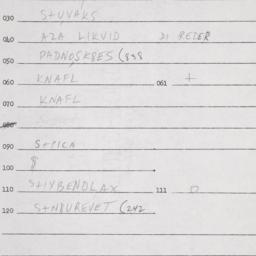 030 STUVAKS
040 AZA LIKVID DI REDER
050 PADNOSKBES (838
060 KNAFL 061 +
070 KNAFL
080
090 SPFICA
100 8
110 STIYBENDLAX 111 □
120 STNDUREVET (242